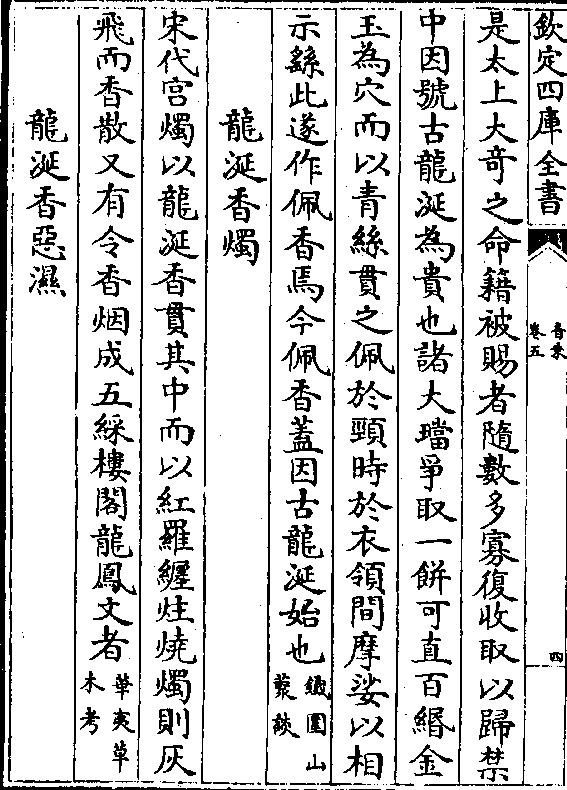 欽定四庫全書
香乘
卷五
四
是太上大竒之命籍被賜者隨數多寡復收取以歸禁
中因號古龍涎為貴也諸大璫爭取一餅可直百緡金
玉為穴而以青絲貫之佩於頸時於衣領間摩娑以相
示繇此遂作佩香焉今佩香蓋因古龍涎始也鐵圍山
叢談
龍涎香燭
宋代宫燭以龍涎香貫其中而以紅羅纏炷燒燭則灰
飛而香散又有令香烟成五綵樓閣龍鳳文者華夷草
木考
龍涎香惡濕